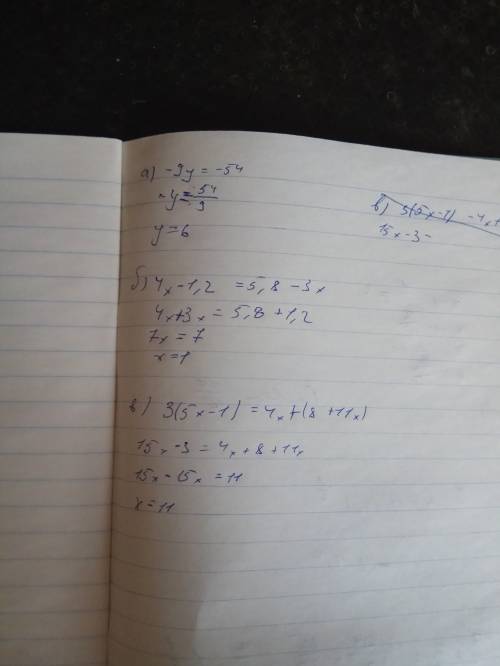 а) -9y = -54
y = 54/9
y = 6
б) 4x - 1,2 = 5,8 - 3x
4x + 3x = 5,8 + 1,2
7x = 7
x = 1
в) 3(5x - 1) = 4x + (8 + 11x)
15x - 3 = 4x + 8 + 11x
15x - 15x = 11
x = 11
в)
15x - 3 -